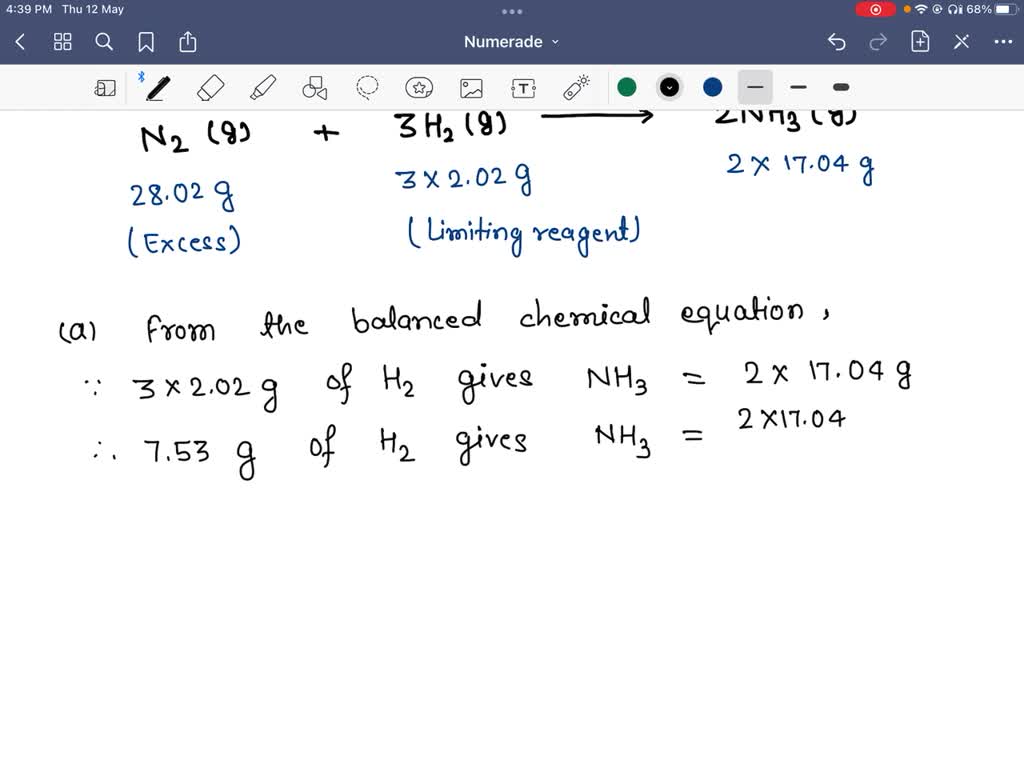 4:39 PM Thu 12 May
68%
Numerade
N2 (g) + 3H2 (g) → 2NH3 (g)
28.02 g 3 × 2.02 g 2 × 17.04 g
(Excess) (Limiting reagent)
(a) From the balanced chemical equation,
∵ 3 × 2.02 g of H2 gives NH3 = 2 × 17.04 g
∴ 7.53 g of H2 gives NH3 = 2×17.04